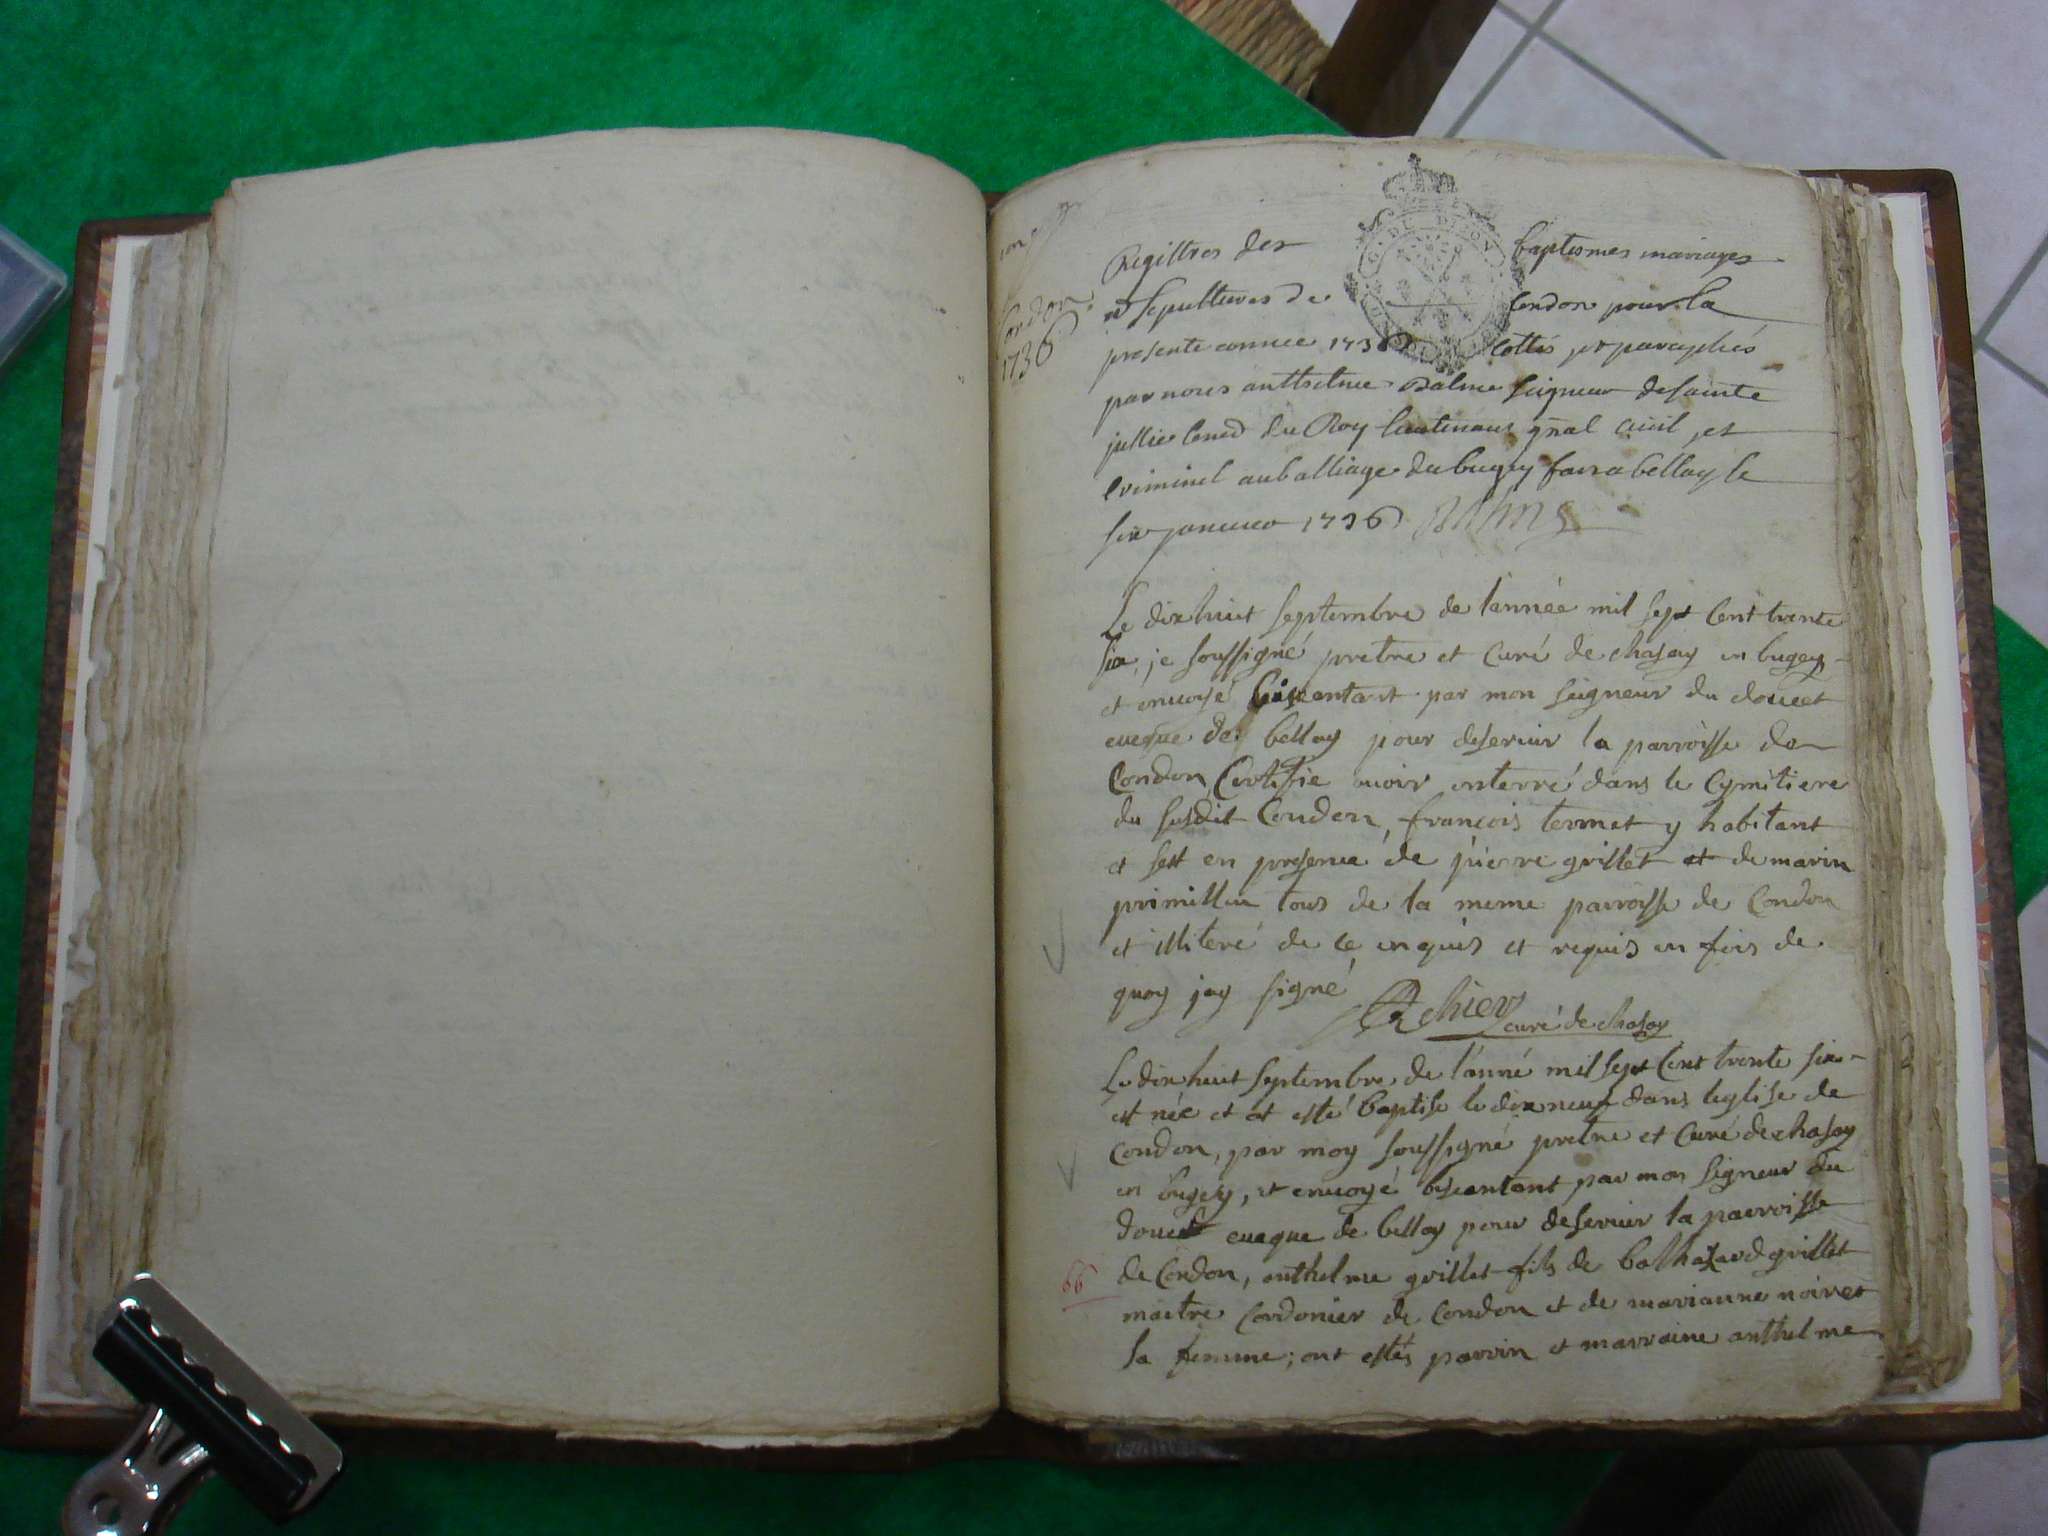 Condon
1736
Registres des baptesmes mariages
et sepultures de Condon pour la
presente année 1736 cottés et paraphés
par nous anthelme Balme seigneur de sainte
jullie Conser du Roy lieutenant gñal ciuil et
criminel au balliage du bugey fait a bellay le
six januier 1736 Balme
Le dix huit septembre de l'année mil sept Cent trente
six, je soussigné pretre et Curé de chasay en bugey
et enuoyé biscantant par mon seigneur du doucet
eueque de bellay pour deseruir la parroisse de
Condon, Certifie auoir enterré dans le Cymitiere
du susdit Condon, francois termet y habitant
et sest en presence de pierre grillet et de marin
primillieu tous de la meme parroisse de Condon
et illiteré de ce enquis et requis en fois de
quoy jay signé
curé de chasay
Le dix huit septembre de l'anné mil sept Cent trente six
est née et at esté baptise le dix neuf dans leglise de
Condon, par moy soussigné pretre et Curé de chasay
en bugey, et enuoyé biscantant par mon signeur du
doucet eueque de bellay pour deseruir la parroisse
66 de Condon, anthelme grillet fils de balthazard grillet
maitre Cordonier de Condon et de marianne noiret
sa femme; ont estés parrin et marraine anthelme